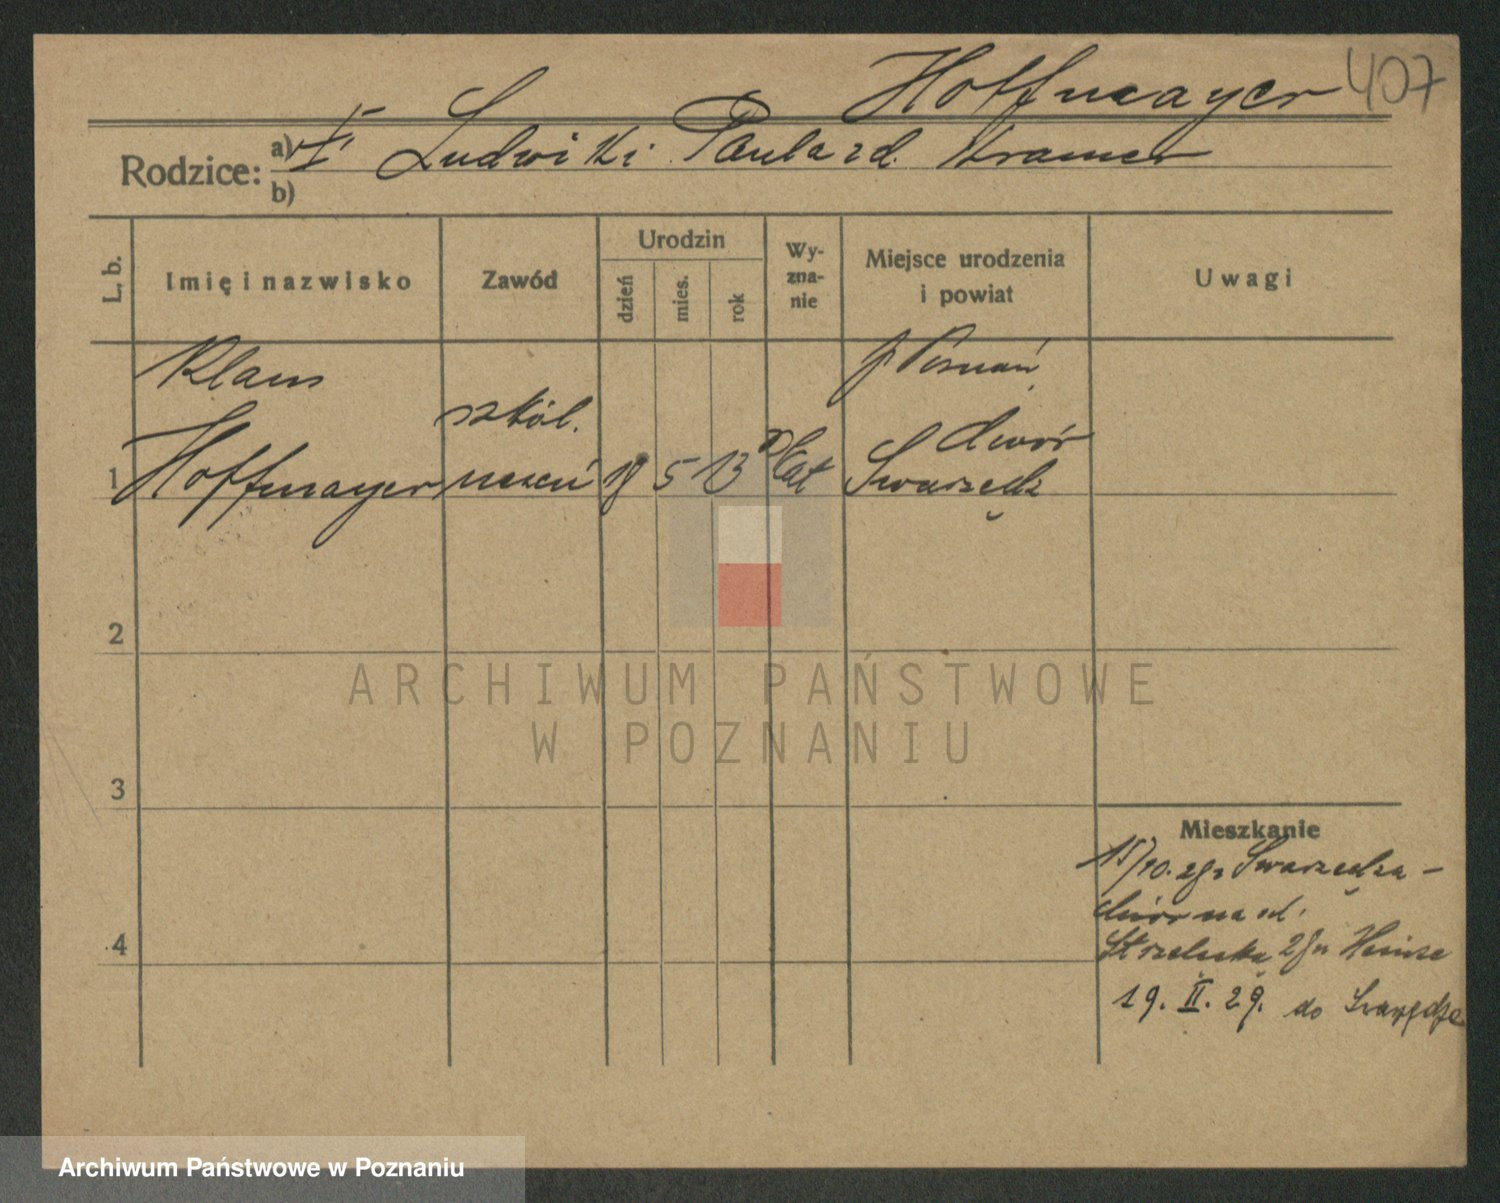 Hoffmayer 407
Rodzice: a) Ludwik i Paula zd. Kramer
b)
L. b.
Imię i nazwisko
Zawód
Urodzin
dzień
mies.
rok
Wy-
zna-
nie
Miejsce urodzenia
i powiat
Uwagi
Klaus
Hoffmayer
szkól.
uczeń
18 5 13
kat
p. Poznań
dwór
Swarzędz
1
2
3
4
Mieszkanie
15/10. 28 z Swarzędza -
dwór na ul.
Strzelecka 28 Heinze
19. II. 29. do Swarzędza
ARCHIWUM PAŃSTWOWE
W POZNANIU
Archiwum Państwowe w Poznaniu